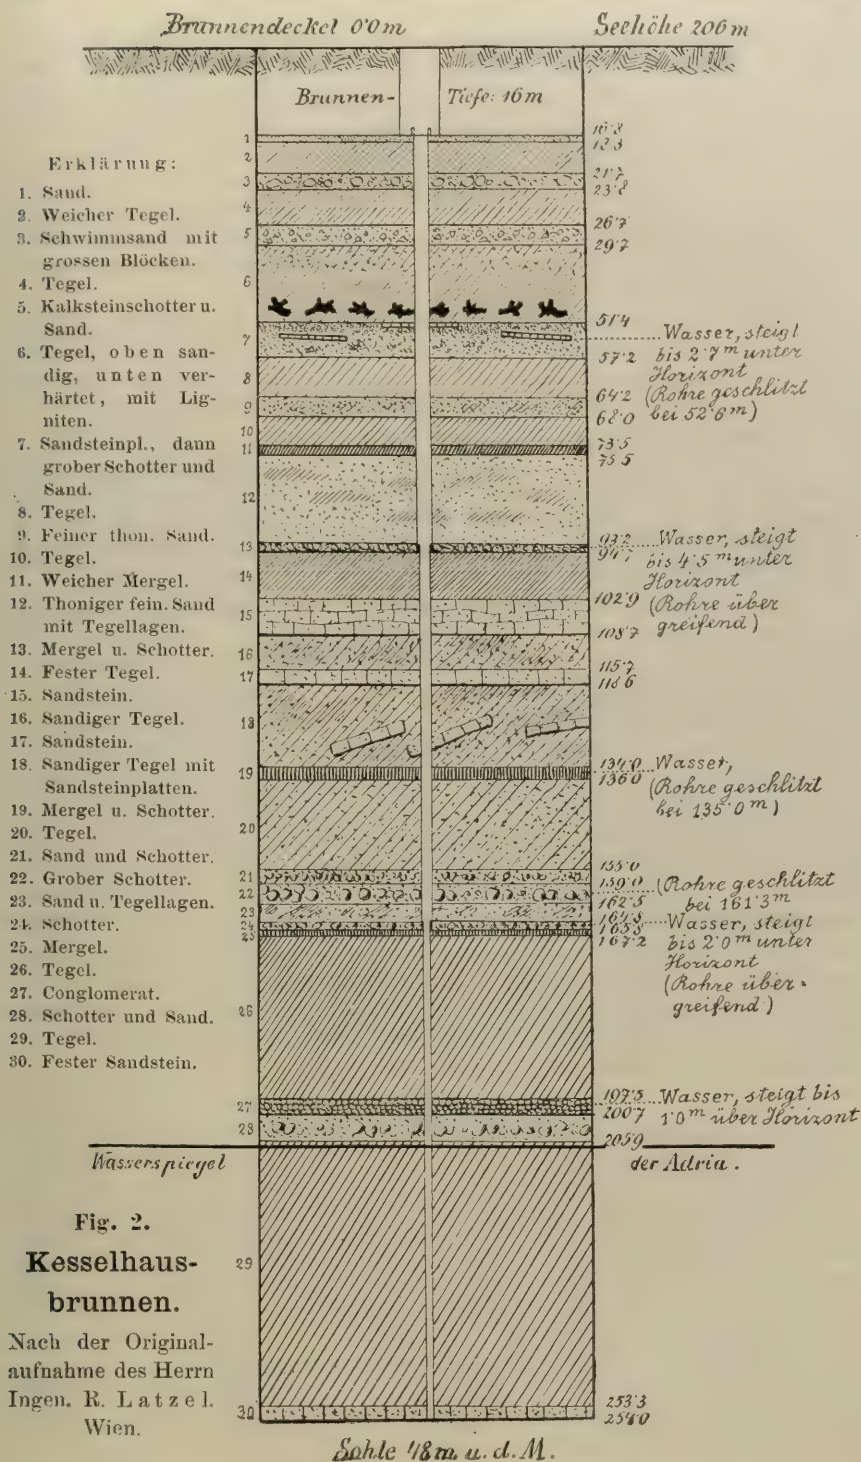 Brunnendeckel 0·0m
Seehöhe 206m
Brunnen-
Tiefe: 16m
Erklärung:
1. Sand.
2. Weicher Tegel.
3. Schwimmsand mit
grossen Blöcken.
4. Tegel.
5. Kalksteinschotter u.
Sand.
6. Tegel, oben san-
dig, unten ver-
härtet, mit Lig-
niten.
7. Sandsteinpl., dann
grober Schotter und
Sand.
8. Tegel.
9. Feiner thon. Sand.
10. Tegel.
11. Weicher Mergel.
12. Thoniger fein. Sand
mit Tegellagen.
13. Mergel u. Schotter.
14. Fester Tegel.
15. Sandstein.
16. Sandiger Tegel.
17. Sandstein.
18. Sandiger Tegel mit
Sandsteinplatten.
19. Mergel u. Schotter.
20. Tegel.
21. Sand und Schotter.
22. Grober Schotter.
23. Sand u. Tegellagen.
24. Schotter.
25. Mergel.
26. Tegel.
27. Conglomerat.
28. Schotter und Sand.
29. Tegel.
30. Fester Sandstein.
1
2
3
4
5
6
7
8
9
10
11
12
13
14
15
16
17
18
19
20
21
22
23
24
25
26
27
28
29
30
18·3
21·7
23·8
26·7
29·7
51·4
Wasser, steigt
57·2 bis 2·7m unter
Horizont
64·2 (Rohre geschlitzt
68·0 bei 52·6m)
73·5
75·5
93·2 Wasser, steigt
94·7 bis 4·5m unter
Horizont
102·9 (Rohre über
108·7 greifend)
115·7
118·6
134·0 Wasser,
136·0 (Rohre geschlitzt
bei 135·0m)
155·0
159·0 (Rohre geschlitzt
162·5 bei 161·3m
Wasser, steigt
167·2 bis 2·0m unter
Horizont
(Rohre über-
greifend)
197·5 Wasser, steigt bis
200·7 1·0m über Horizont
205·9
Wasserspiegel
der Adria.
253·3
254·0
Sohle 48m. u. d. M.
Fig. 2.
Kesselhaus-
brunnen.
Nach der Original-
aufnahme des Herrn
Ingen. R. Latzel.
Wien.